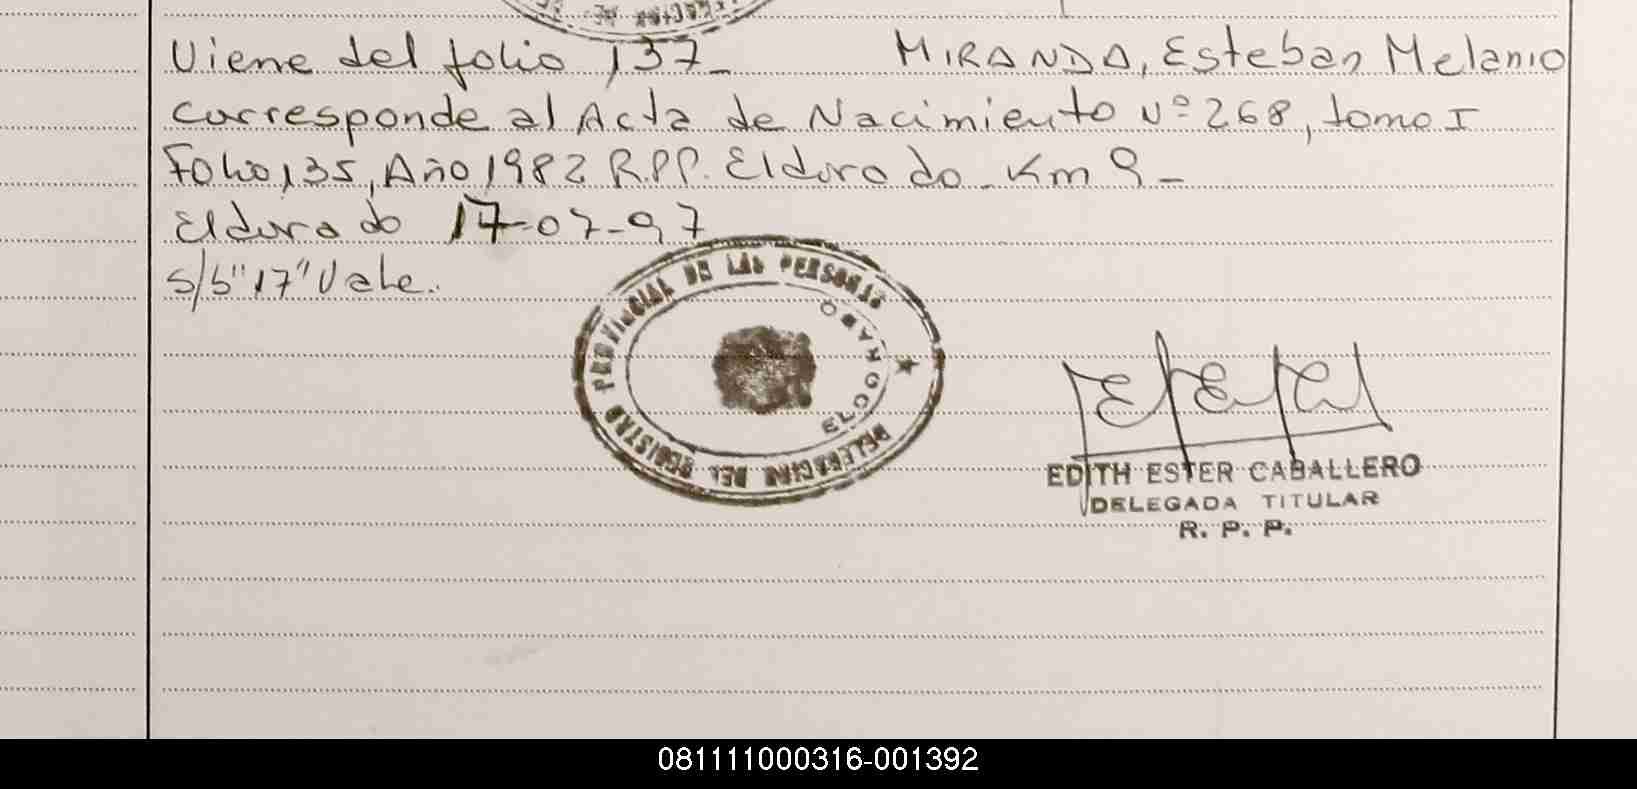 Viene del folio 137_ MIRANDA, Esteban Melanio
corresponde al Acta de Nacimiento Nº 268, tomo I
Folio 135, Año 1982 R.P.P. Eldorado - Km 9 -
Eldorado 17-07-97
S/b "17" Vale.
DELEGACION DEL REGISTRO PROVINCIAL DE LAS PERSONAS
ELDORADO
EDITH ESTER CABALLERO
DELEGADA TITULAR
R. P. P.
081111000316-001392